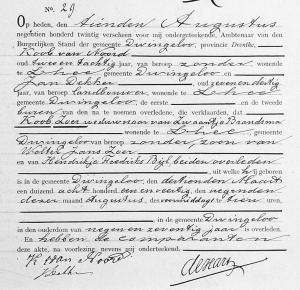 No. 29
Op heden, den tienden Augustus
negentien honderd twintig verscheen voor mij ondergeteekende, Ambtenaar van den
Burgerlijken Stand der gemeente Dwingeloo, provincie Drenthe,
Roelf van Noord
oud twee en tachtig jaren, van beroep zonder, wonende te
Lhee gemeente Dwingeloo en
Jan Dekker oud zeven en dertig
jaren, van beroep landbouwer, wonende te Lhee
gemeente Dwingeloo, de eerste en de tweede
buren van den na te noemen overledene, die verklaarden, dat
Roelf Zoer weduwnaar van Zwaantje Brandsma
wonende te Lhee, gemeente
Dwingeloo van beroep zonder, zoon van
Wolter Jans Zoer
en van Hendrikje Fredriks Bijl, beiden overleden
uit welke hij geboren
is in de gemeente Dwingeloo, den dertienden Maart
een duizend acht honderd een en veertig, den negenden
dezer maand Augustus, des voormiddags te tien uren,
in de gemeente Dwingeloo
in den ouderdom van negen en zeventig jaar is overleden.
En hebben de comparanten
deze akte, na voorlezing, nevens mij onderteekend.